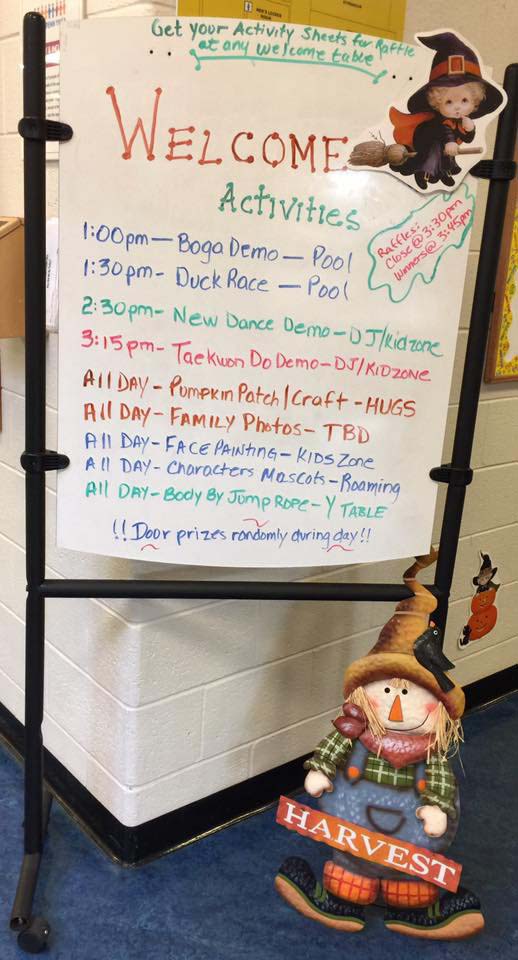 Get your Activity Sheets for Raffle
at any welcome table
WELCOME
Activities
Raffles:
Close @ 3:30pm
Winners @ 3:45pm
1:00pm — Boga Demo — Pool
1:30pm - Duck Race — Pool
2:30pm - New Dance Demo - DJ/kidzone
3:15pm - Taekwon Do Demo - DJ/KIDZONE
All DAY - Pumpkin Patch/Craft - HUGS
All DAY - FAMILY Photos - TBD
All DAY - FACE PAINTING - KIDS Zone
All DAY - Characters Mascots - Roaming
All DAY - Body By Jump Rope - Y TABLE
!! Door prizes randomly during day !!
HARVEST